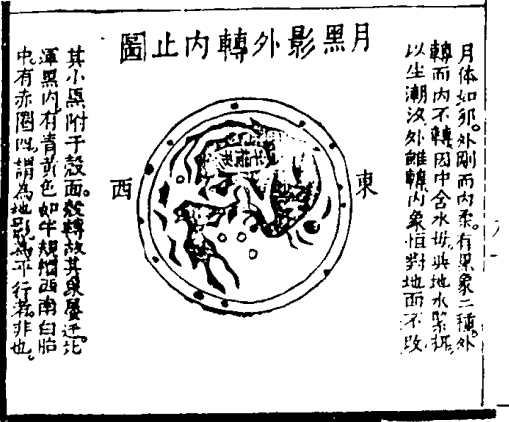 月黑影外轉內止圖
月体如卵。外剛而內柔。有黑象二種。外
轉而內不轉因中含水母。與地水緊抵。
以生潮汐外雖轉內象恒對地面不改
東
西
其小点附于殼面。殼轉故其象屡迁。北
渾黑內有青黃色如牛規帽西南白胎
中有赤圈。謂為地影為不行者。非也。